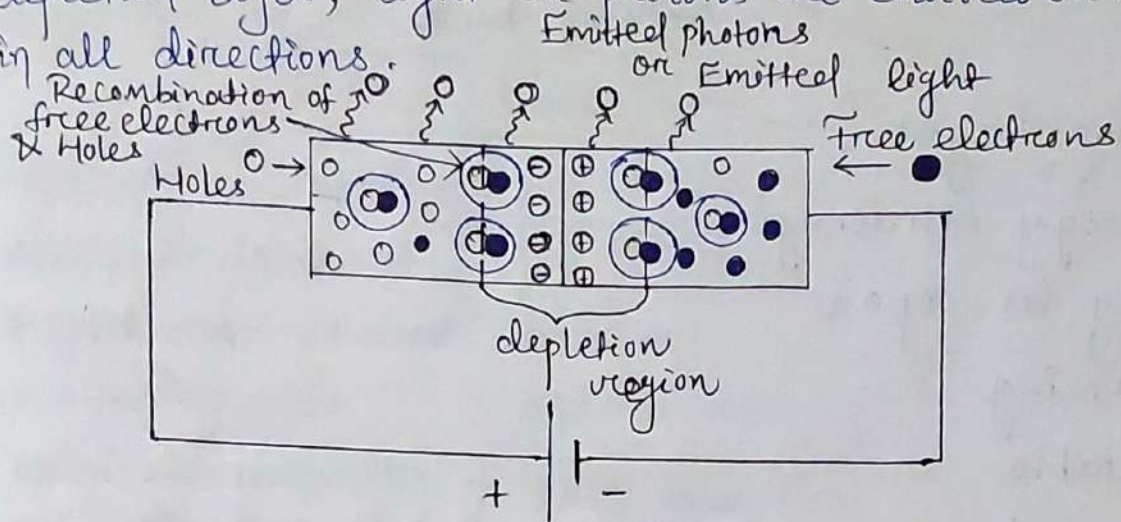 in all directions.
Emitted photons
or Emitted light
Recombination of
free electrons
& Holes
Holes
Free electrons
depletion
region
+ -